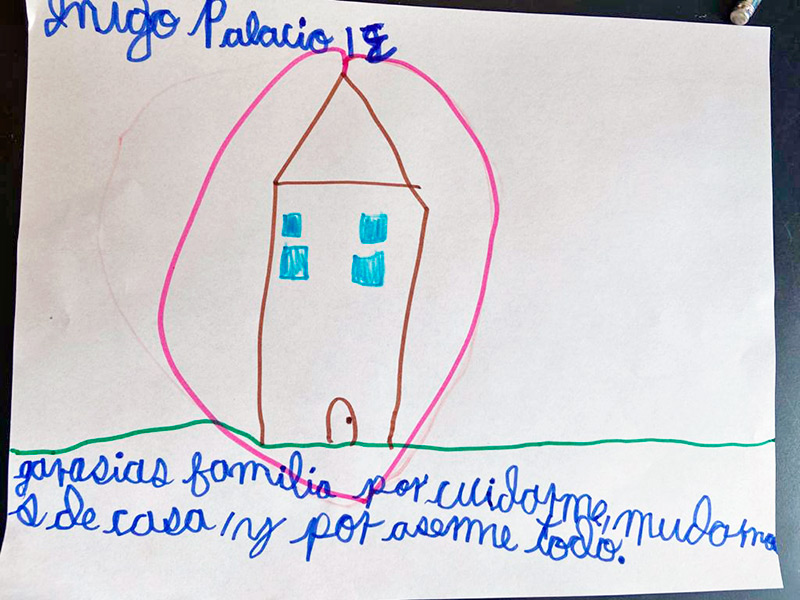 Inigo Palacio 1E
garasias familia por cuidarme, mudamo
s de casa, y por aserme todo.